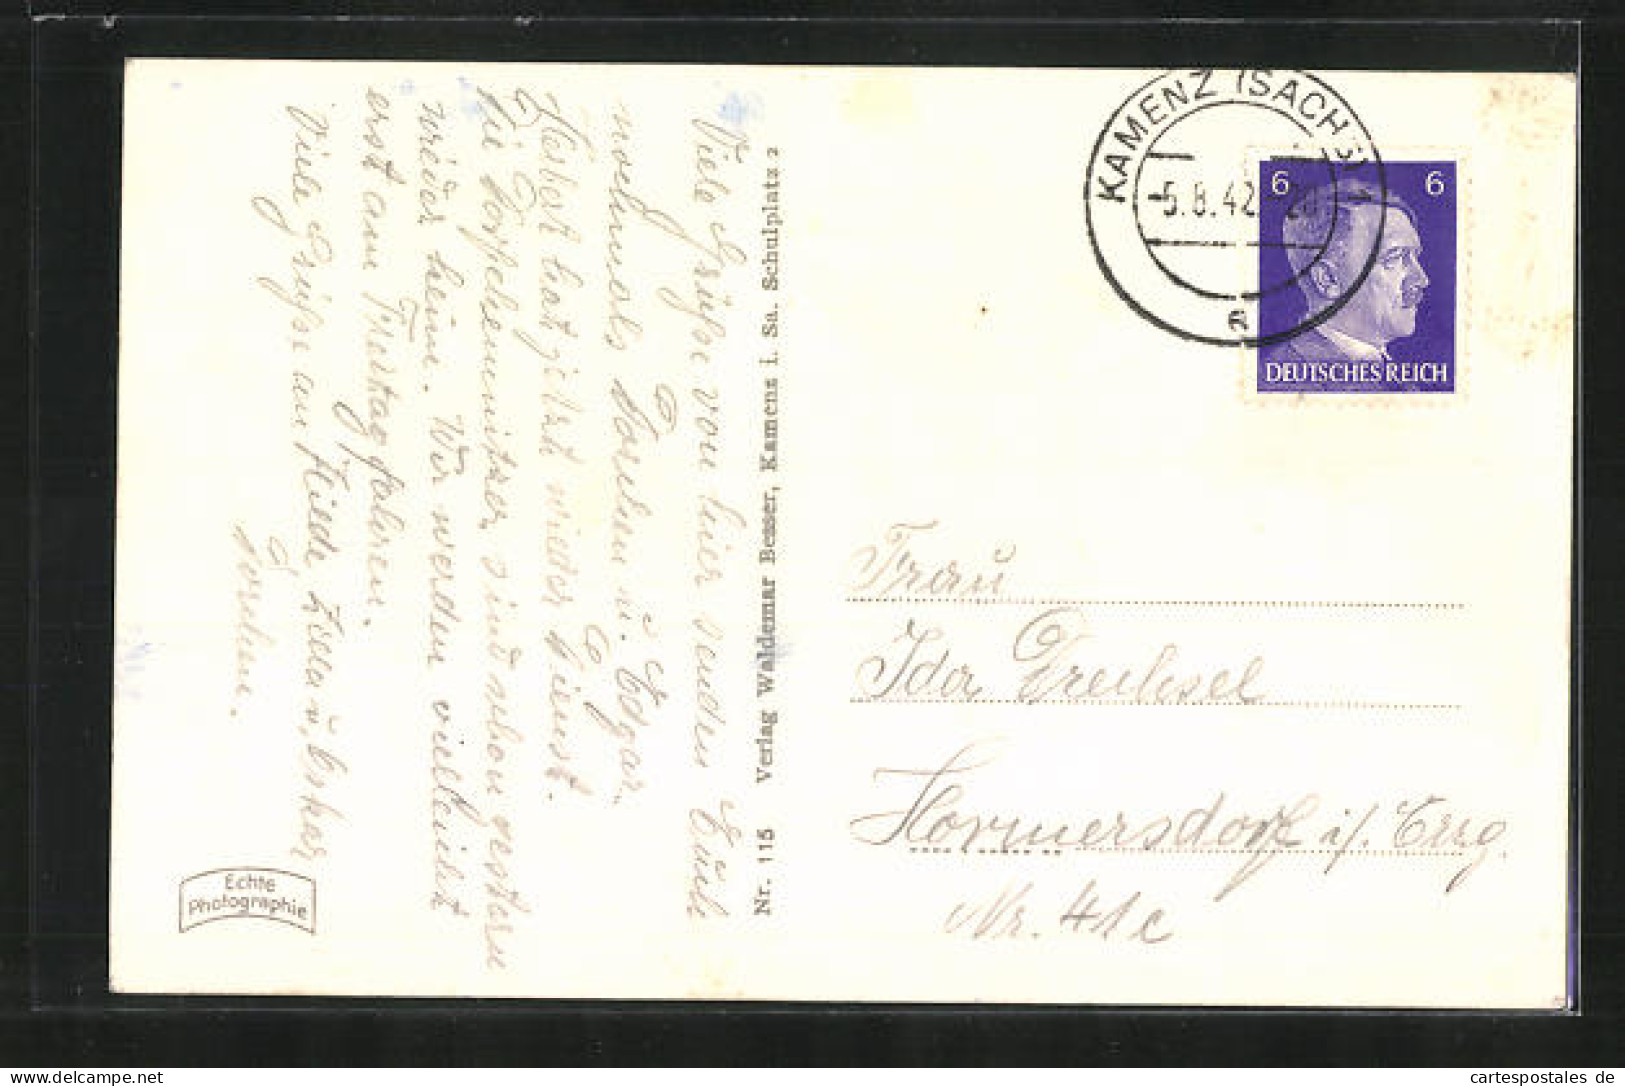 Viele Grüße von hier senden Euch
nochmals Dorchen u. Edgar.
Herbert hat jetzt wieder Dienst.
Die sind schon gestern
wieder heim. Wir werden vielleicht
erst am Freitag fahren.
Viele Grüße an u. Oskar
Dorchen.
Echte
Photographie
Nr. 115 Verlag Waldemar Besser, Kamenz i. Sa. Schulplatz 2
KAMENZ (SACHS) 1
-5.8.42. 20
a
6 6
DEUTSCHES REICH
Frau
Ida Drechsel
Hormersdorf i/. Erzg.
Nr. 41c
hier-et-demain
cartespostales de